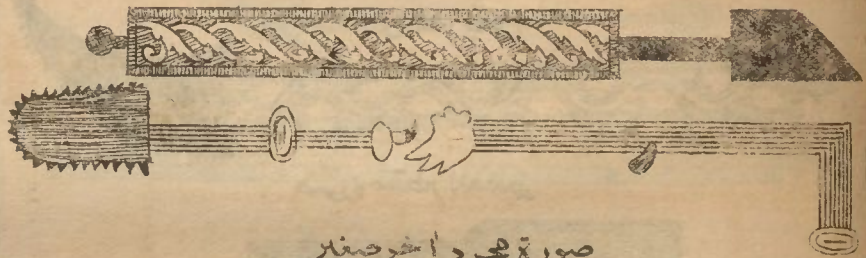 صورة مجرد آخر صغير